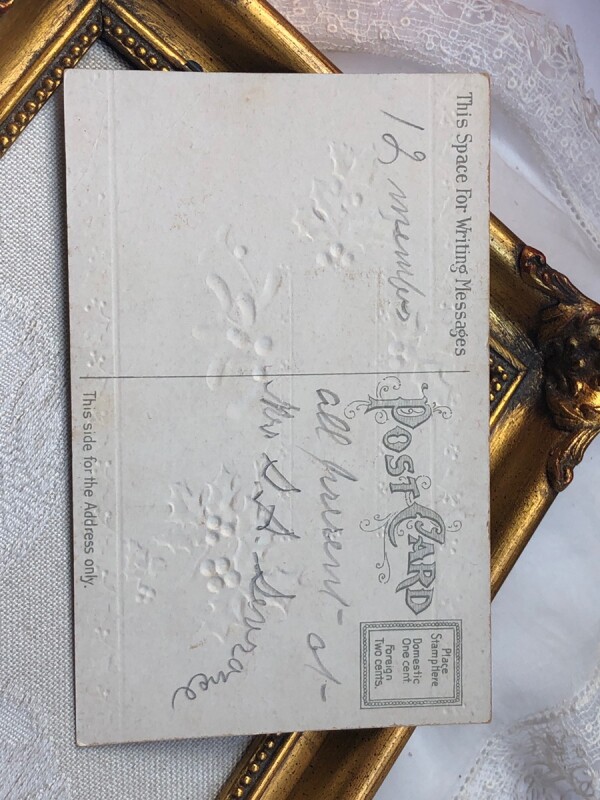 This Space For Writing Messages
12 members
POST CARD
all present at
Mrs S. A.
Place
Stamp Here
Domestic
One cent
Foreign
Two cents.
This side for the Address only.